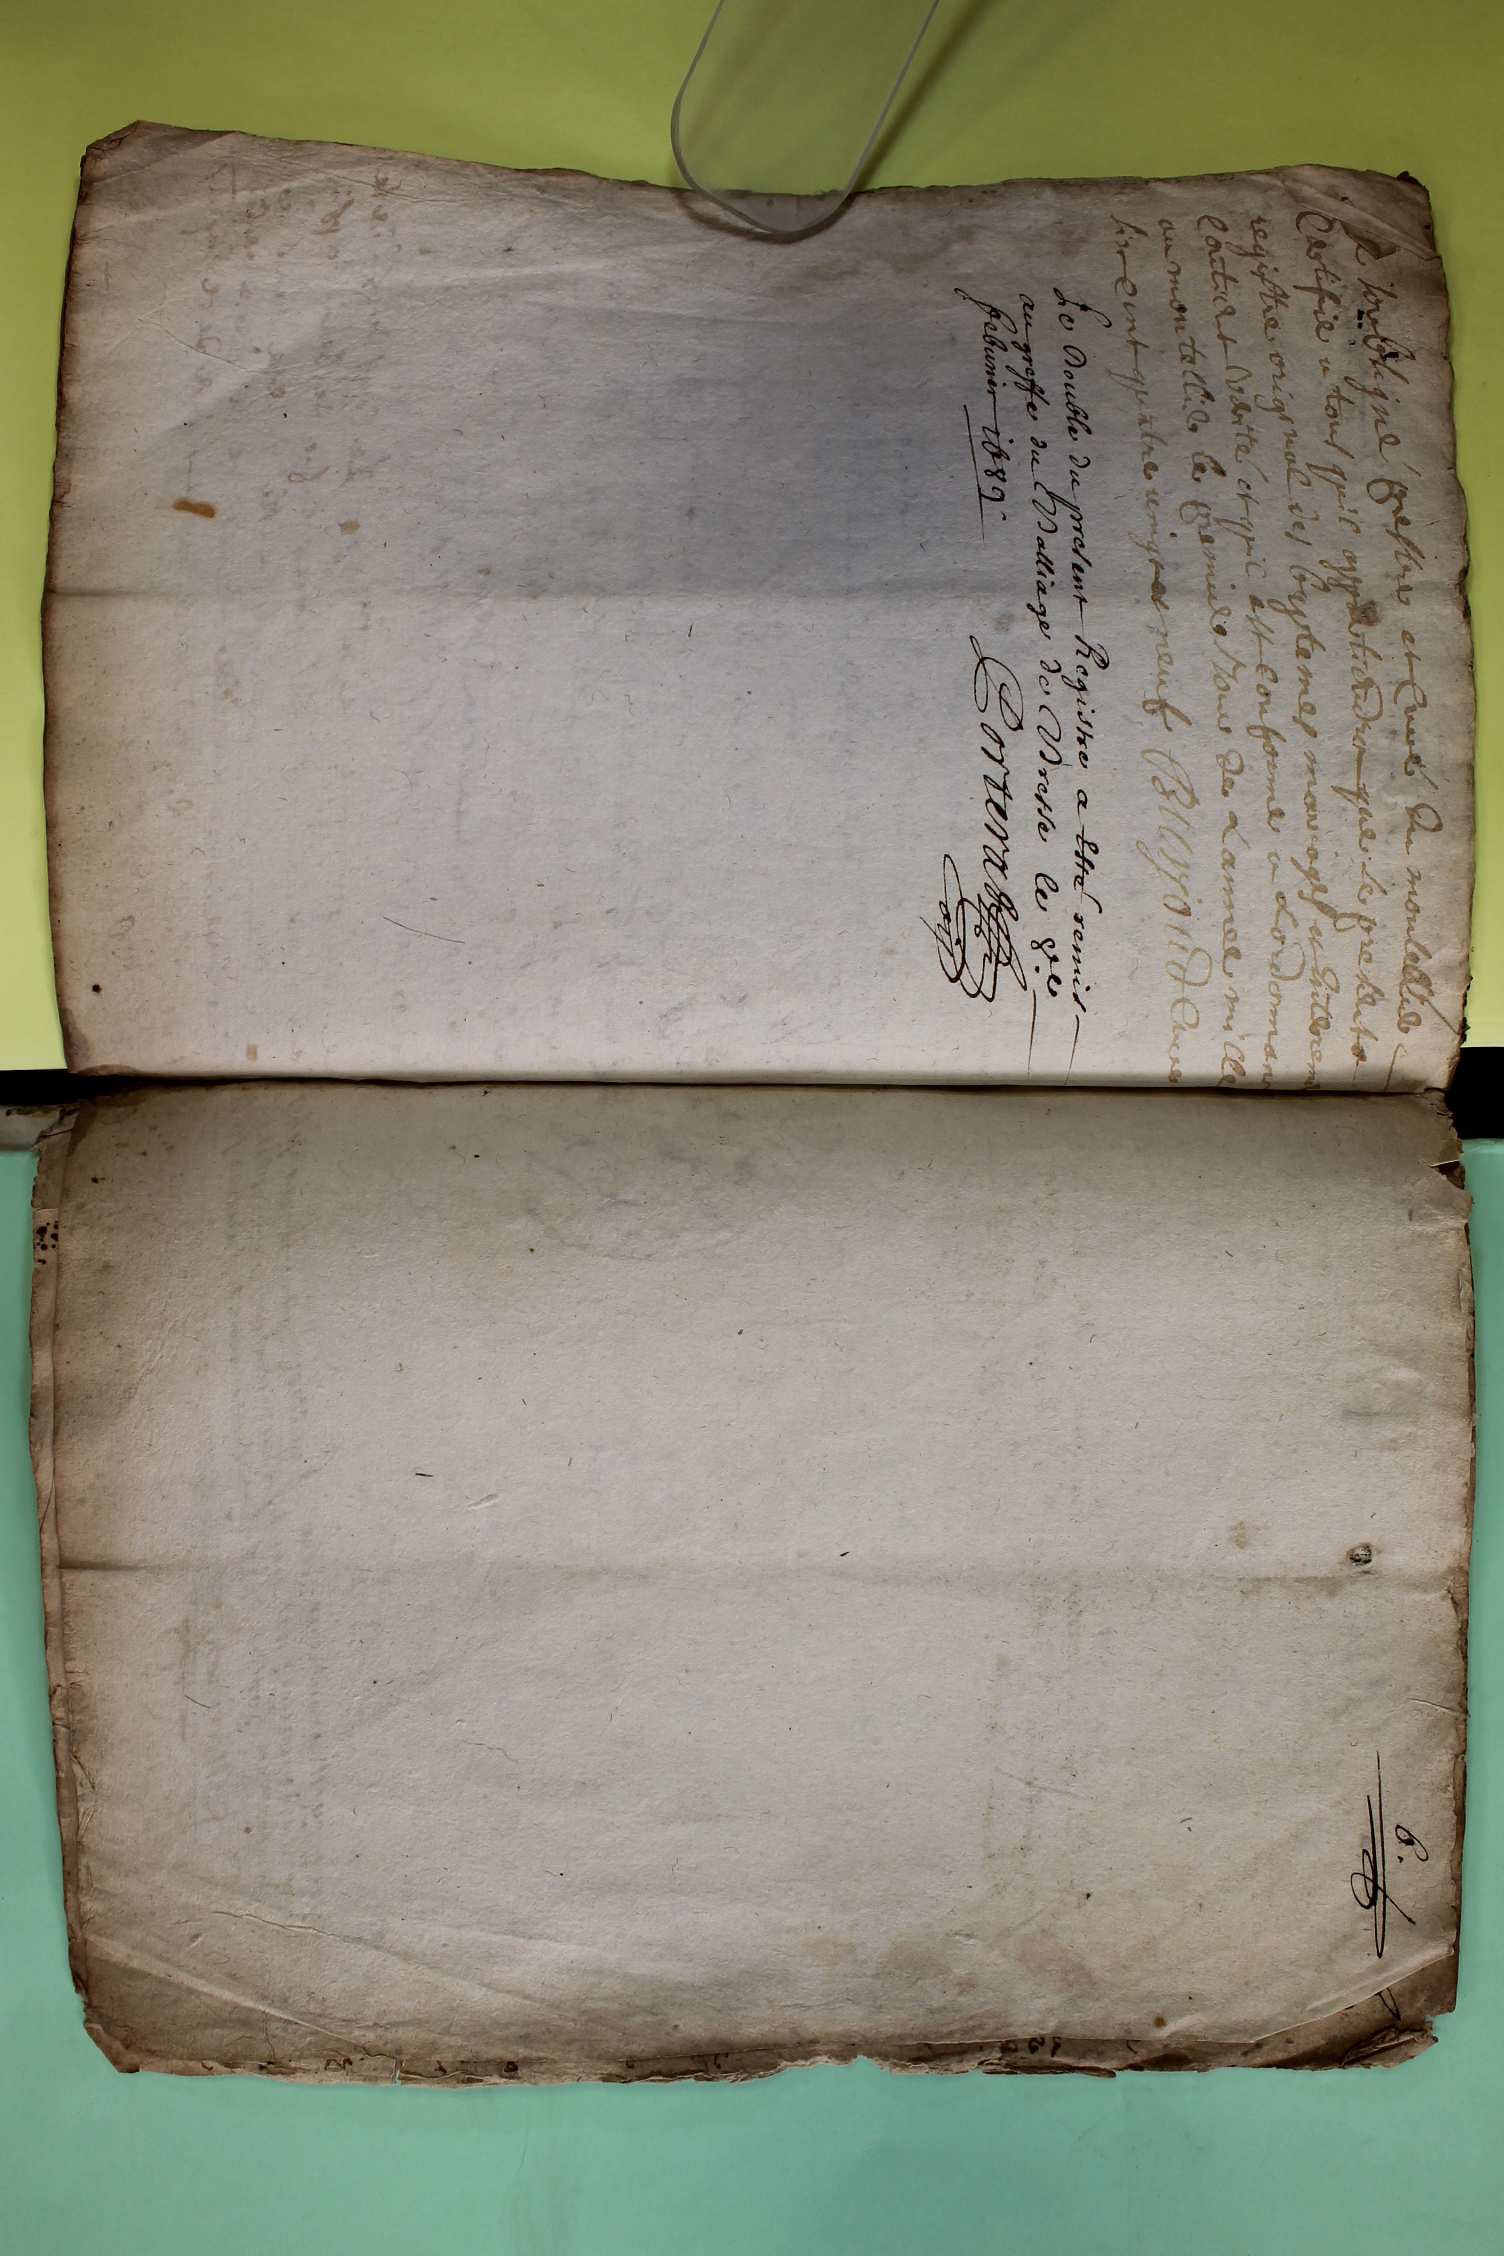 Je soubsigné prestre et Curé du montellier
Certifie a tous quil appartiendra que le present
registre original des baptemes mariages enterrem
contient verité et quil est conforme a Lordonnanc
au montellier le premier Jour de Lannee mille
six cent quatre vingt et neuf Bugjoud Curé
Le double du present Registre a Esté remis
au greffe du Balliage de Bresse le 8.e
febvrier 1689
6.